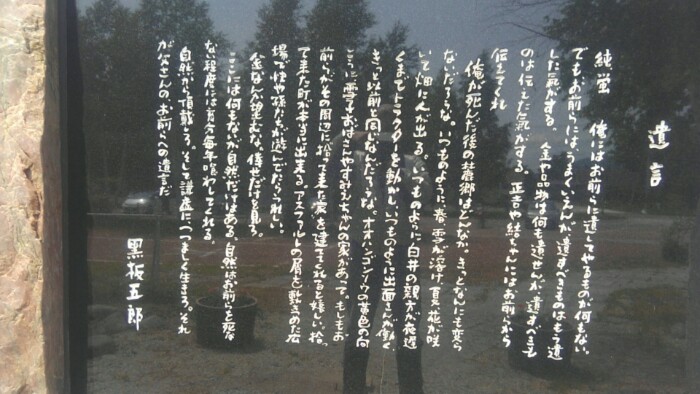 遺言
純 蛍 俺にはお前らに遺してやるものが何もない。
でもお前らには、うまくいえんが遺すべきものはもう遺
した気がする。 金や品物は何も遺せんが遺すべきも
のは伝えた気がする。正吉や結ちゃんにはお前らから
伝えてくれ
俺が死んだ後の麓郷はどんなか。きっとなんにも変ら
ないだろうな。いつものように、春、雪が溶け、夏、花が咲
いて畑に人が出る。いつものように白井の親方が夜遅
くまでトラクターを動かし、いつものように出面さんが働く。
きっと以前と同じなんだろうな。オオハンゴンソウの黄色の向
こうに雪子おばさんやすみえちゃんの家があって。もしもお
前らがその周辺に拾って来た家を建ててくれると嬉しい。拾っ
て来た町が本当に出来る。アスファルトの屑を敷きつめた広
場で快や孫たちが遊んでたらうれしい。
金なんか望むな。倖せだけを見ろ。
ここには何もないが自然だけはある。自然はお前らを死な
ない程度には充分毎年喰わしてくれる。
自然から頂戴しろ。そして謙虚に、つつましく生きろ。それ
が父さんのお前らへの遺言だ
黒板五郎